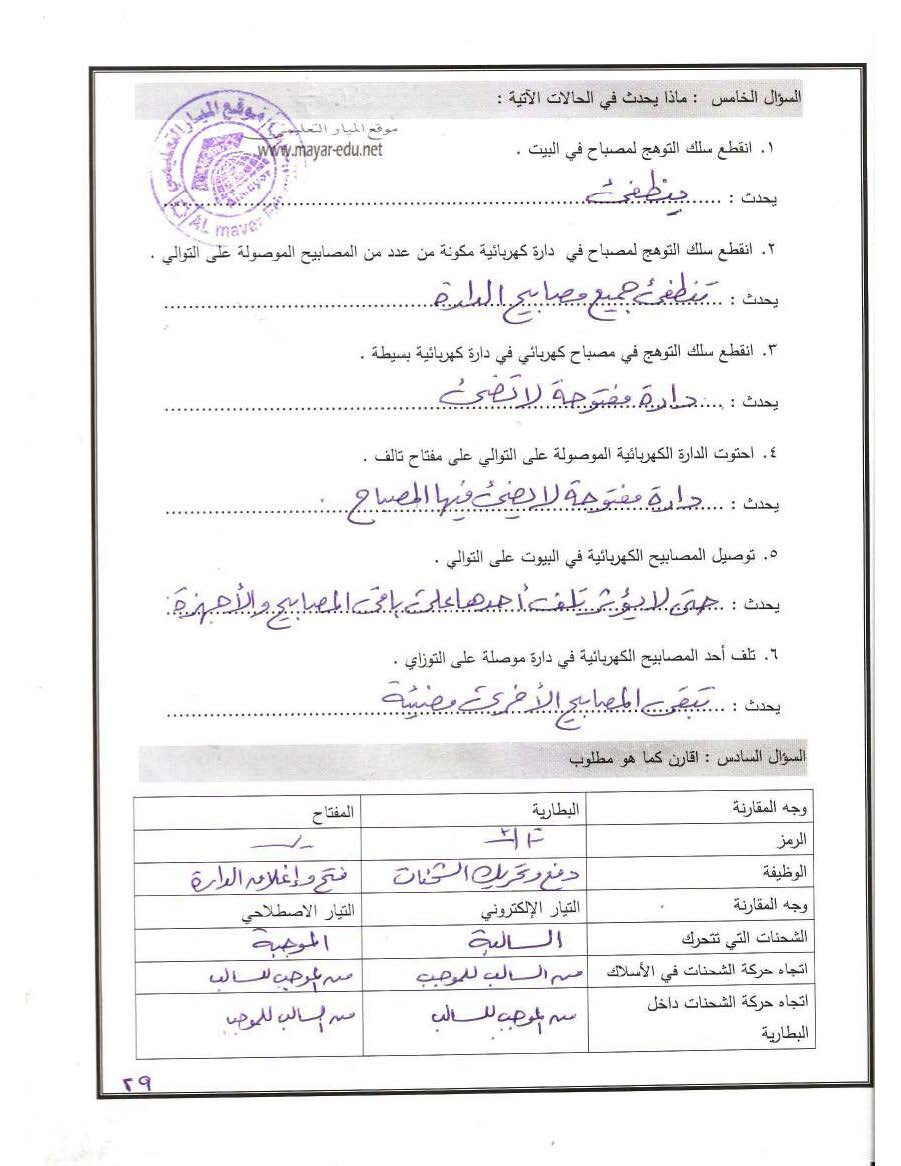 السؤال الخامس : ماذا يحدث في الحالات الآتية :
موقع الميار التعليمي
www.mayar-edu.net
موقع الميار التعليمي
Al mayar
١. انقطع سلك التوهج لمصباح في البيت .
يحدث : ينطفئ
٢. انقطع سلك التوهج لمصباح في دارة كهربائية مكونة من عدد من المصابيح الموصولة على التوالي .
يحدث : تنطفئ جميع مصابيح الدارة
٣. انقطع سلك التوهج في مصباح كهربائي في دارة كهربائية بسيطة .
يحدث : دارة مفتوحة لا تضئ
٤. احتوت الدارة الكهربائية الموصولة على التوالي على مفتاح تالف .
يحدث : دارة مفتوحة لا يضئ فيها المصباح
٥. توصيل المصابيح الكهربائية في البيوت على التوالي .
يحدث : حتى لا يؤثر تلف أحدها على باقي المصابيح والأجهزة
٦. تلف أحد المصابيح الكهربائية في دارة موصلة على التوزاي .
يحدث : تبقى المصابيح الأخرى مضيئة
السؤال السادس : اقارن كما هو مطلوب
وجه المقارنة البطارية المفتاح
الرمز
الوظيفة دفع وتحريك الشحنات فتح وإغلاق الدارة
وجه المقارنة التيار الإلكتروني التيار الاصطلاحي
الشحنات التي تتحرك السالبة الموجبة
اتجاه حركة الشحنات في الأسلاك من السالب للموجب من الموجب للسالب
اتجاه حركة الشحنات داخل البطارية من الموجب للسالب من السالب للموجب
٢٩